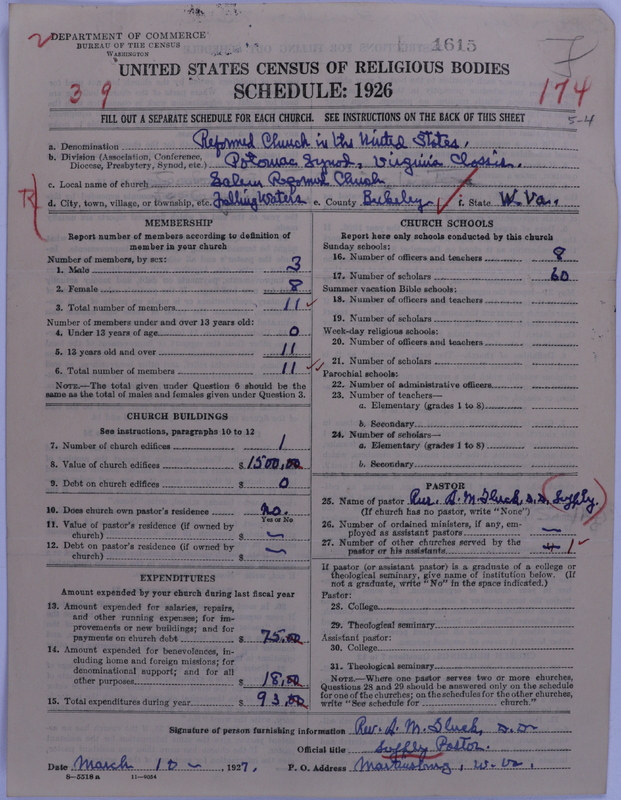 DEPARTMENT OF COMMERCE
BUREAU OF THE CENSUS
WASHINGTON
1615
UNITED STATES CENSUS OF RELIGIOUS BODIES
SCHEDULE: 1926
3 9
174
5-4
FILL OUT A SEPARATE SCHEDULE FOR EACH CHURCH. SEE INSTRUCTIONS ON THE BACK OF THIS SHEET
a. Denomination Reformed Church in the United States,
b. Division (Association, Conference, Diocese, Presbytery, Synod, etc.) Potomac Synod, Virginia Classis.
c. Local name of church Salem Reformed Church
d. City, town, village, or township, etc. Falling Waters e. County Berkeley f. State W. Va.
MEMBERSHIP
Report number of members according to definition of
member in your church
Number of members, by sex:
1. Male 3
2. Female 8
3. Total number of members 11
Number of members under and over 13 years old:
4. Under 13 years of age 0
5. 13 years old and over 11
6. Total number of members 11
NOTE.—The total given under Question 6 should be the
same as the total of males and females given under Question 3.
CHURCH BUILDINGS
See instructions, paragraphs 10 to 12
7. Number of church edifices 1
8. Value of church edifices $ 1500,00
9. Debt on church edifices $ 0
10. Does church own pastor's residence no.
Yes or No
11. Value of pastor's residence (if owned by
church) $ —
12. Debt on pastor's residence (if owned by
church) $ —
EXPENDITURES
Amount expended by your church during last fiscal year
13. Amount expended for salaries, repairs,
and other running expenses; for im-
provements or new buildings; and for
payments on church debt $ 75.00
14. Amount expended for benevolences, in-
cluding home and foreign missions; for
denominational support; and for all
other purposes $ 18,00
15. Total expenditures during year $ 93.00
CHURCH SCHOOLS
Report here only schools conducted by this church
Sunday schools:
16. Number of officers and teachers 8
17. Number of scholars 60
Summer vacation Bible schools:
18. Number of officers and teachers
19. Number of scholars
Week-day religious schools:
20. Number of officers and teachers
21. Number of scholars
Parochial schools:
22. Number of administrative officers
23. Number of teachers—
a. Elementary (grades 1 to 8)
b. Secondary
24. Number of scholars—
a. Elementary (grades 1 to 8)
b. Secondary
PASTOR
25. Name of pastor Rev. A. M. Gluck, D.D. Supply
(If church has no pastor, write "None")
26. Number of ordained ministers, if any, em-
ployed as assistant pastors —
27. Number of other churches served by the
pastor or his assistants 1
If pastor (or assistant pastor) is a graduate of a college or
theological seminary, give name of institution below. (If
not a graduate, write "No" in the space indicated.)
Pastor:
28. College
29. Theological seminary
Assistant pastor:
30. College
31. Theological seminary
NOTE.—Where one pastor serves two or more churches,
Questions 28 and 29 should be answered only on the schedule
for one of the churches; on the schedules for the other churches,
write "See schedule for church."
Signature of person furnishing information Rev. A. M. Gluck, D.D
Official title Supply Pastor.
Date March 10 — 1927. P. O. Address Martinsburg, W. Va.
8—5518 a 11—9054